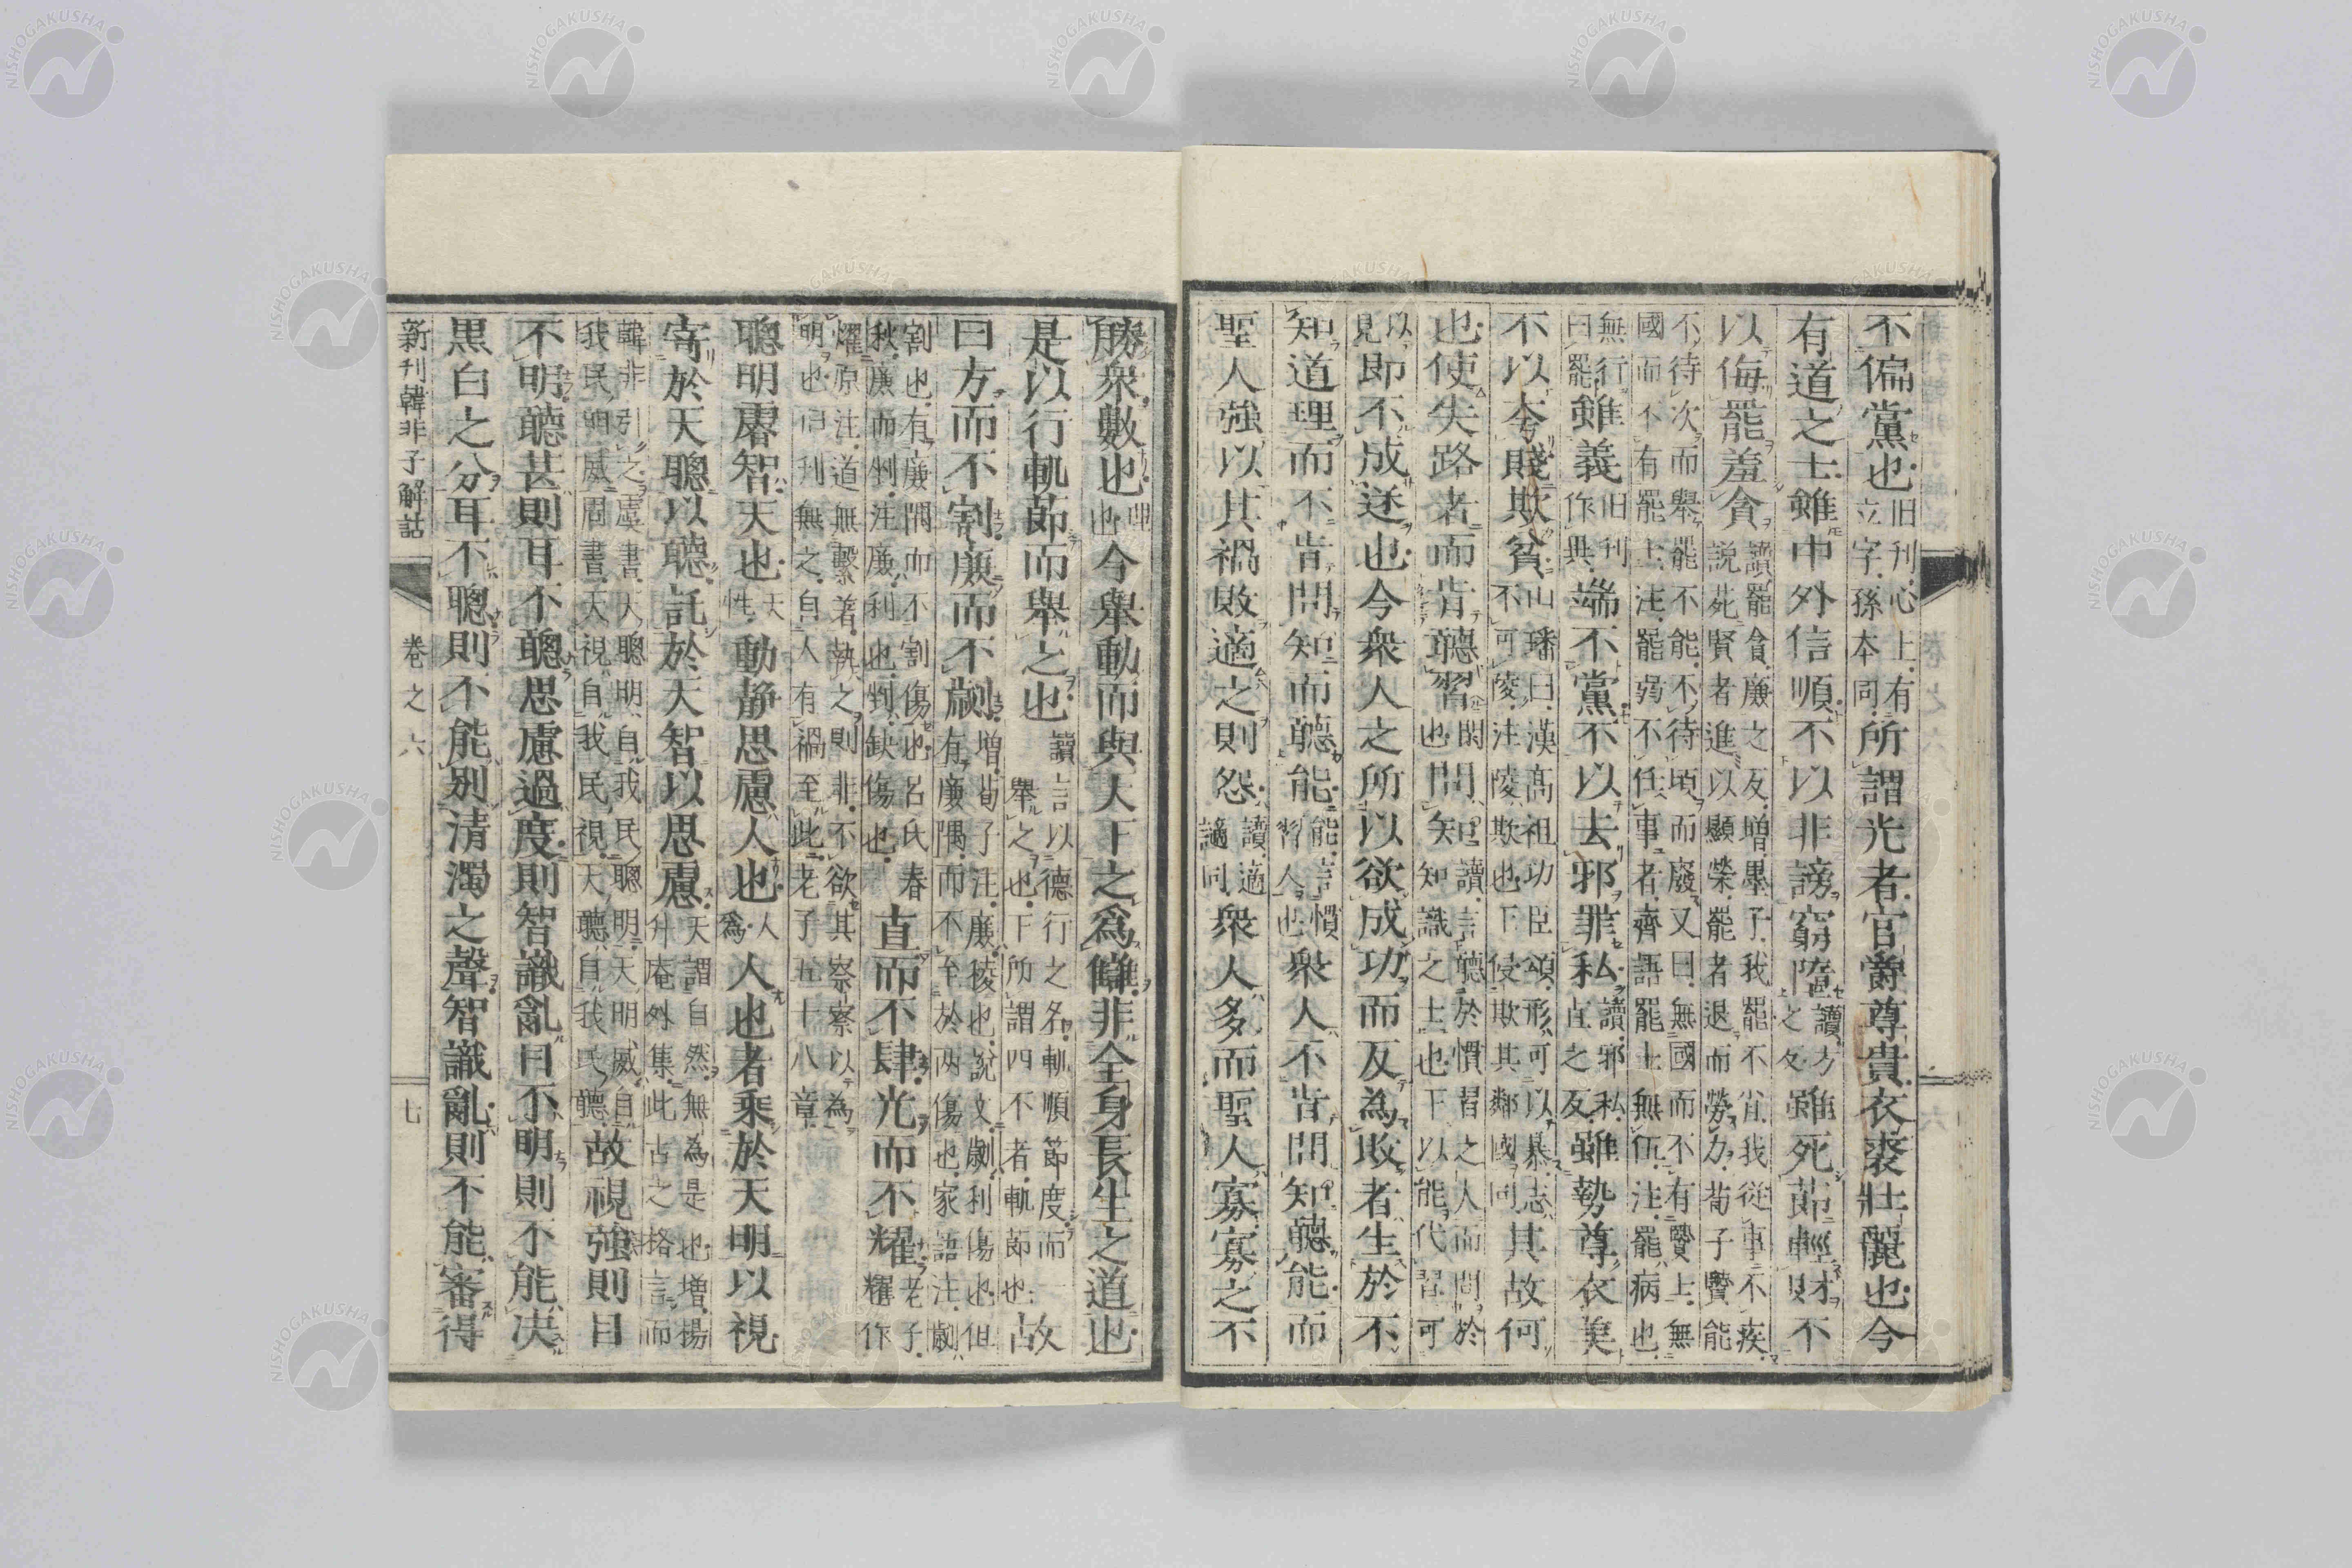 不偏黨也旧刊心上有立字孫本同所謂光者官爵尊貴衣裘壯麗也今
有道之士雖中外信順不以非謗窮墮讀方之攵雖死節輕財不
以侮罷羞貪讀罷貪廉之反増墨子我罷不肖我從事不疾説苑賢者進以顯榮罷者退而勞力荀子賢能
不待次而舉罷不能不待頃而廢又曰無國而不有賢士無國而不有罷士注罷弱不任事者齊語罷士無伍注罷病也
無行曰罷雖義旧刊作與端不黨不以去邪罪私讀邪私直之反雖勢尊衣美
不以夸賤欺貧山璠曰漢高祖功臣頌形可以暴志不可陵注陵欺也下侵欺其鄰國同其故何
也使失路者而肯聽習閑也問知讀言聽於慣習之人而問於知識之士也下以能代習可
以見即不成迷也今衆人之所以欲成功而反為敗者生於不
知道理而不肯問知而聽能能言慣習人也衆人不肯問知聽能而
聖人強以其禍敗適之則怨讀適謫同衆人多而聖人寡寡之不
勝衆數也理也今舉動而與天下之爲讎非全身長生之道也
是以行軌節而舉之也讀言以德行之名軌順節度而舉之也下所謂四不者軌節也故
曰方而不割廉而不劌増荀子注廉稜也説文劌利傷也但有廉隅而不至於兩傷也家語注劌
割也有廉隅而不割傷也呂氏春秋廉而剉注廉利也剉缺傷也直而不肆光而不耀老子耀作
燿原注道無繫著執之則非不欲其察察以為明也旧刊無之自人有禍至此老子五十八章
聰明睿智天也天性動静思慮人也人為人也者乘於天明以視
寄於天聰以聽託於天智以思慮天謂自然無為是也増揚升庵外集此古之格言而
韓非引之虞書天聰明自我民聰明天明威自我民明威周書天視自我民視天聽自我民聽故視強則目
不明聽甚則耳不聰思慮過度則智識亂目不明則不能决
黒白之分耳不聰則不能別清濁之聲智識亂則不能審得
新刊韓非子解詁 卷之六 七